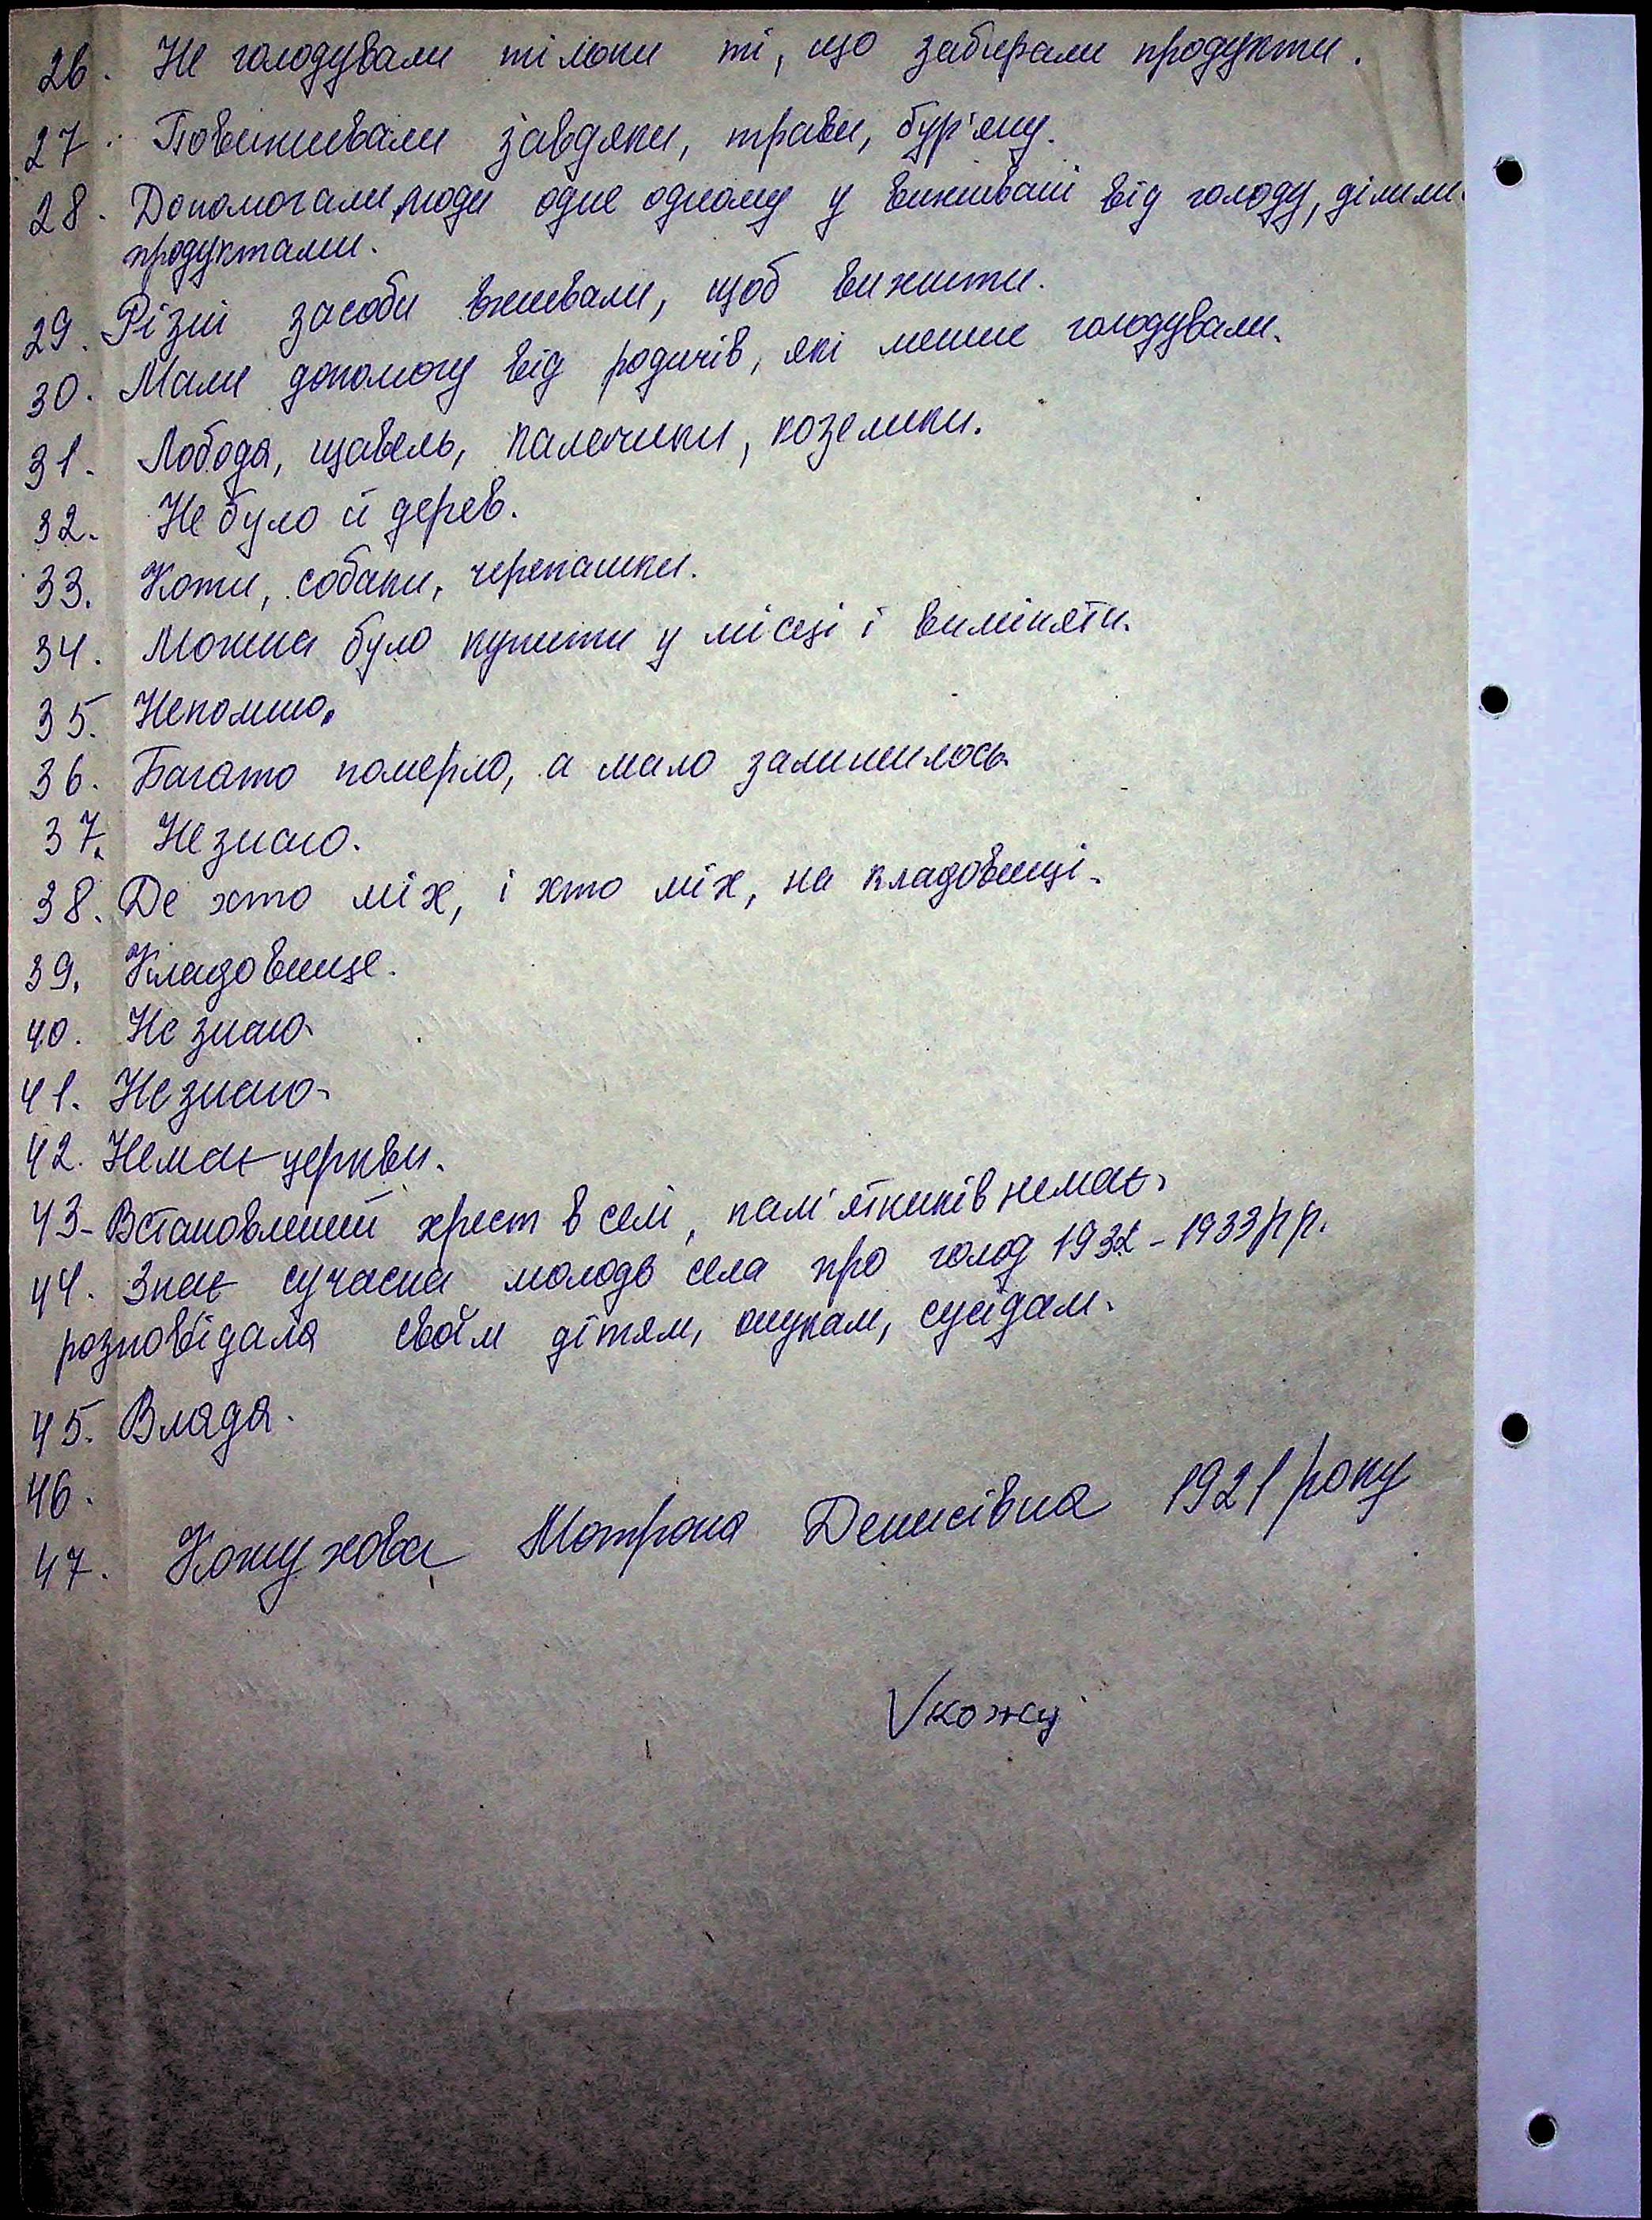 26. Не голодували тільки ті, що забирали продукти.
27. Повиживали завдяки, трави, бур'яну.
28. Допомогали люди одне одному у виживані від голоду, ділили
продуктами.
29. Різні засоби вживали, щоб вижити.
30. Мали допомогу від родичів, які менше голодували.
31. Лобода, щавель, палочики, козелики.
32. Не було й дерев.
33. Коти, собаки, черепашки.
34. Можна було купити у місці і виміняти.
35. Непомню.
36. Багато померло, а мало залишилось
37. Незнаю.
38. Де хто міх, і хто міх, на кладовищі.
39. Кладовище.
40. Не знаю
41. Незнаю
42. Немає церкви.
43- Встановлений хрест в селі, пам'ятників немає.
44. Знає сучасна молодь села про голод 1932-1933рр.
розповідала своїм дітям, онукам, сусідам.
45. Влада.
46.
47. Кожухова Мотрона Денисівна 1921 року
Vкожу